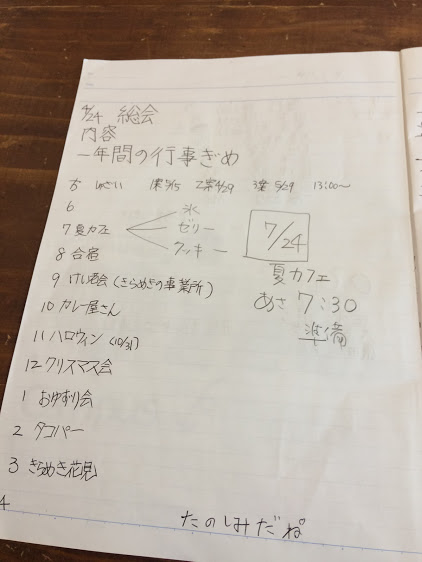 4/24 総会
内容
一年間の行事ぎめ
5 しゅざい 1案5/15 2案5/29 3案5/29 13:00〜
6
7 夏カフェ 氷 ゼリー クッキー
8 合宿
9 けし酒会(きらめきの事業所)
10 カレー屋さん
11 ハロウィン (10/31)
12 クリスマス会
1 おゆずり会
2 タコパー
3 きらめき花見
4
7/24
夏カフェ
あさ 7:30
準備
たのしみだね。